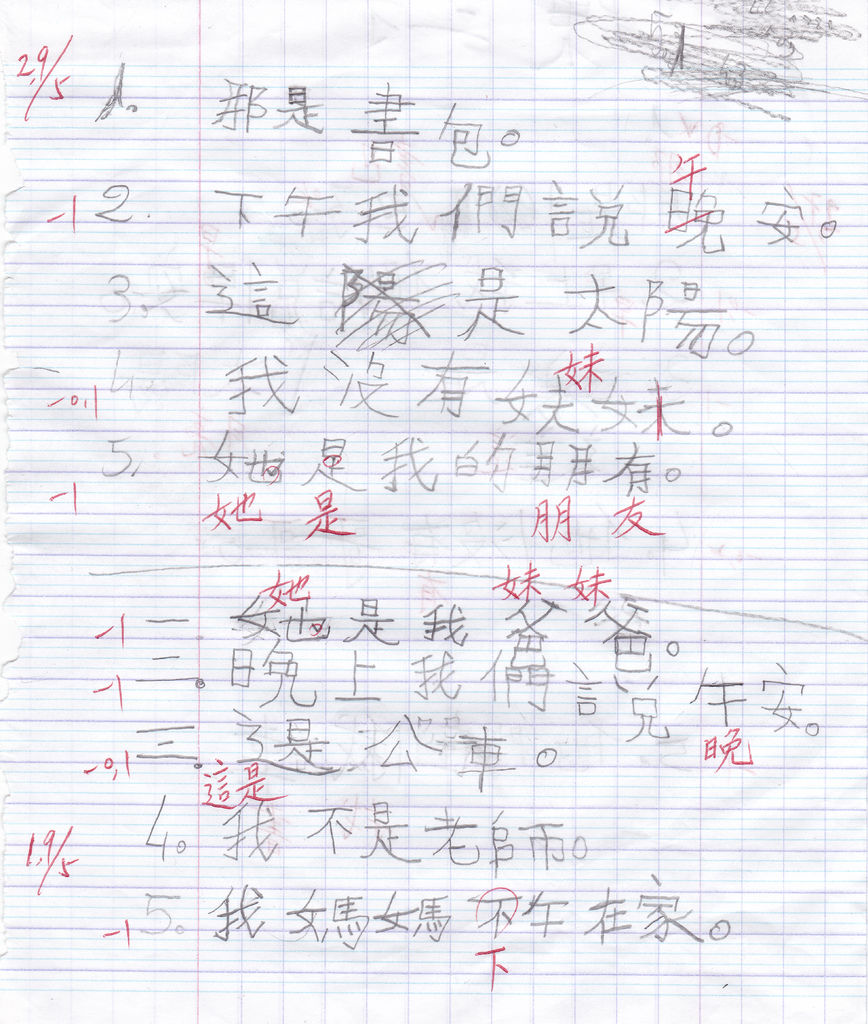 2,9/5
1. 那是書包。
午
-1 2. 下午我們説晚安。
3. 這是太陽。
妹
-0,1 4. 我沒有妹妹。
5. 她是我的朋有。
-1 她 是 朋 友
她 妹 妹
-1 一 她是我爸爸。
-1 二。晚上我們説午安。
晚
-0,1 三。這是公車。
這是
4。我不是老師。
1,9/5
-1 5。我媽媽不午在家。
下